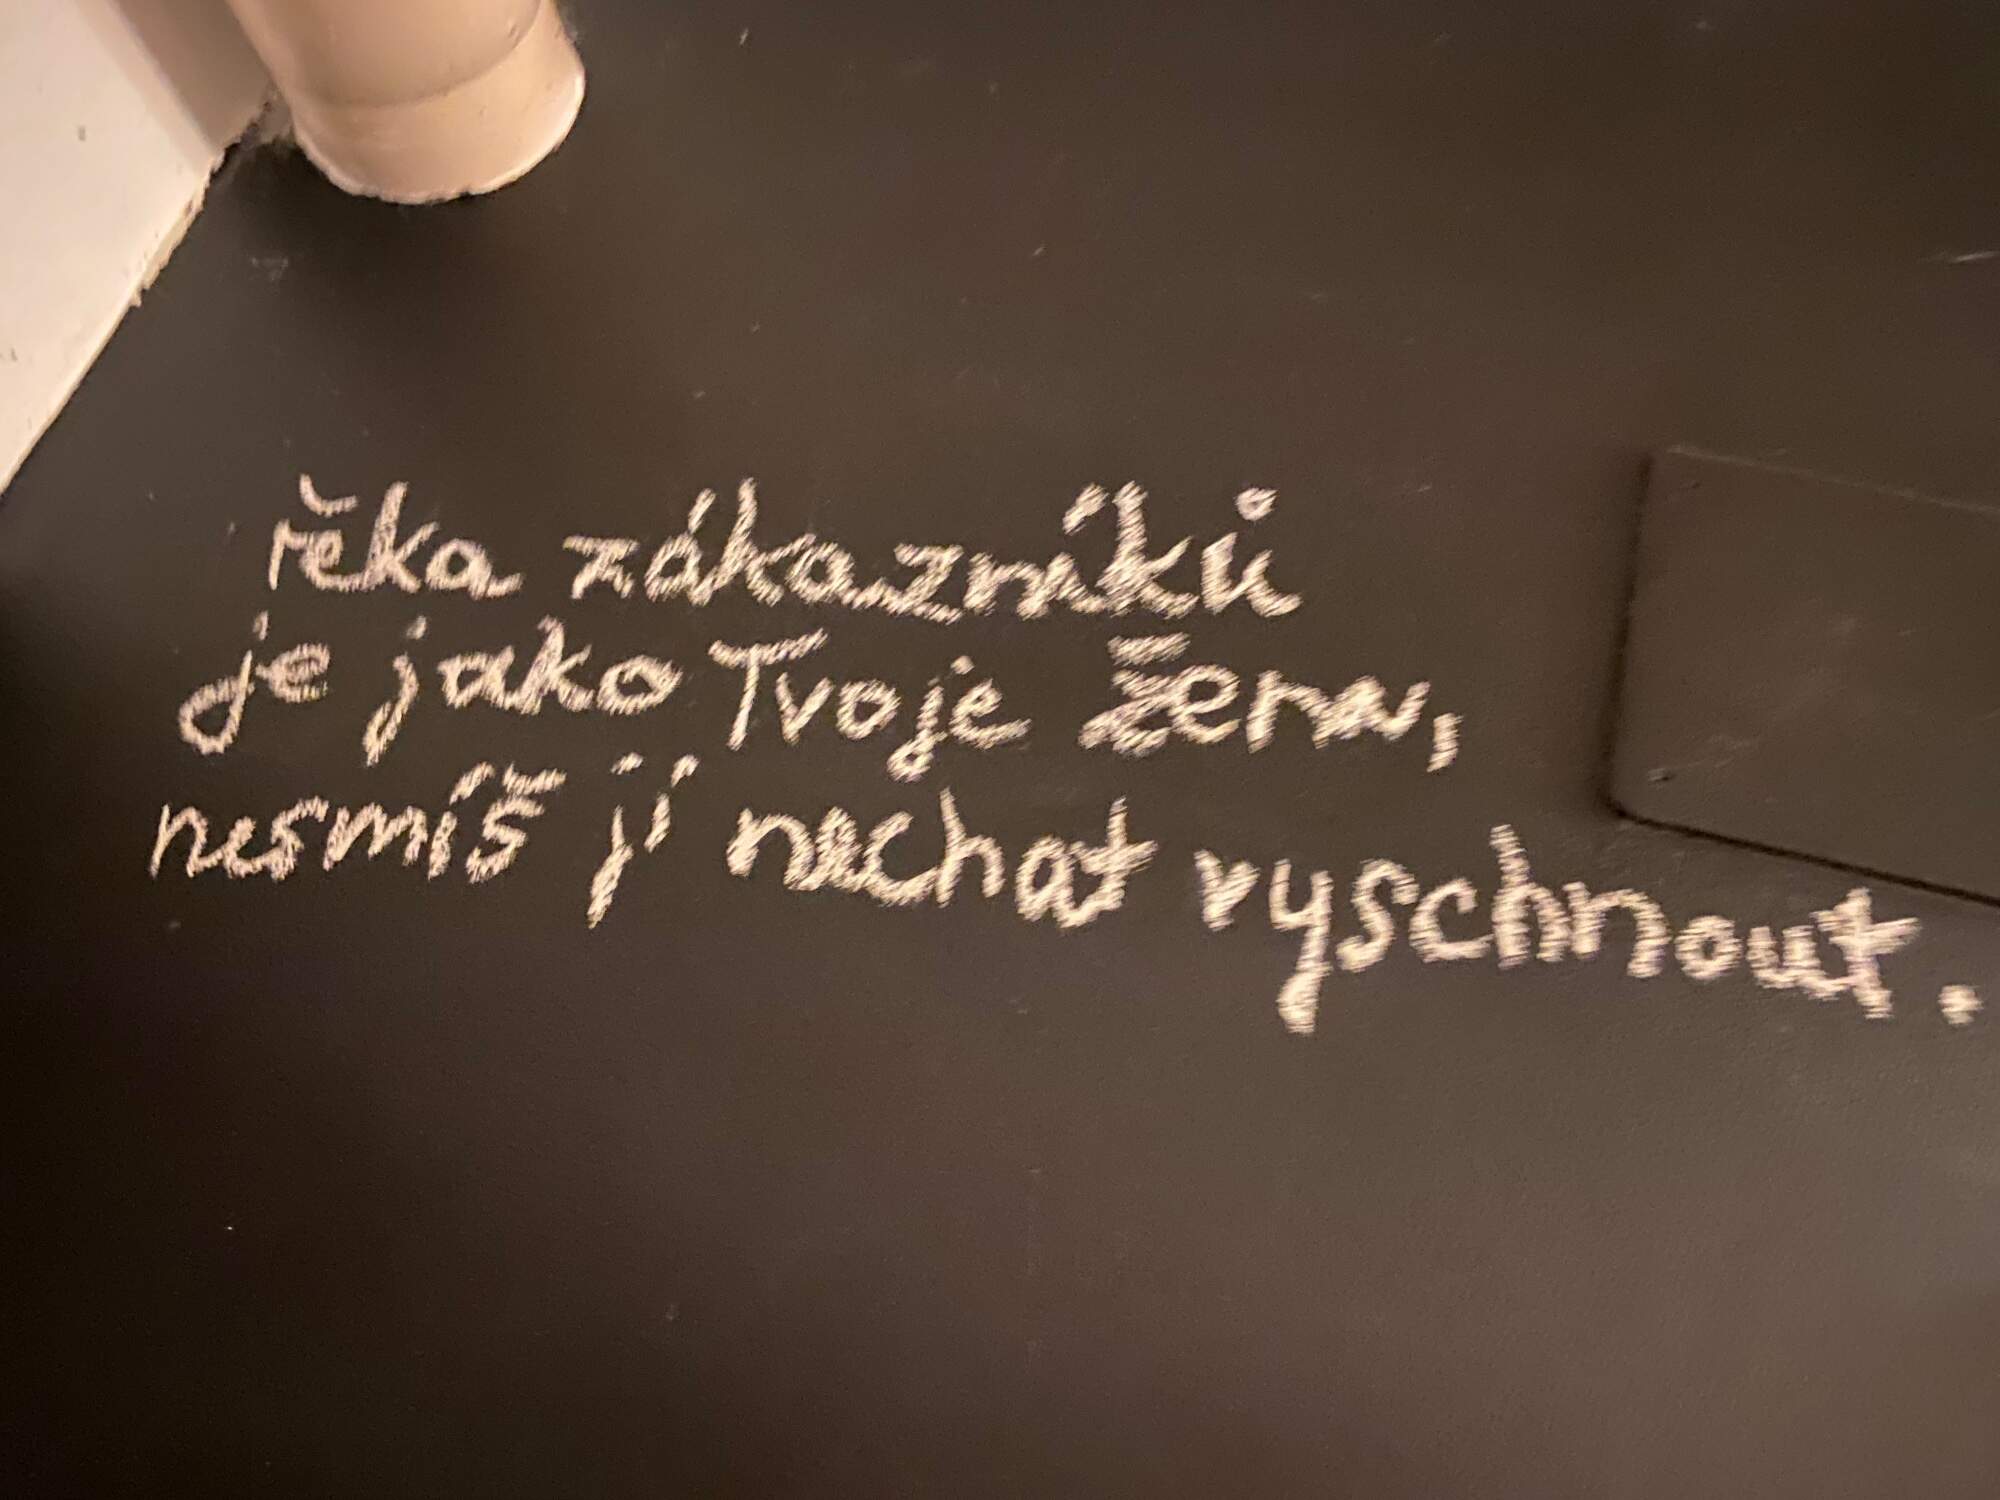 řeka zákazníků
je jako Tvoje žena,
nesmíš jí nechat vyschnout.